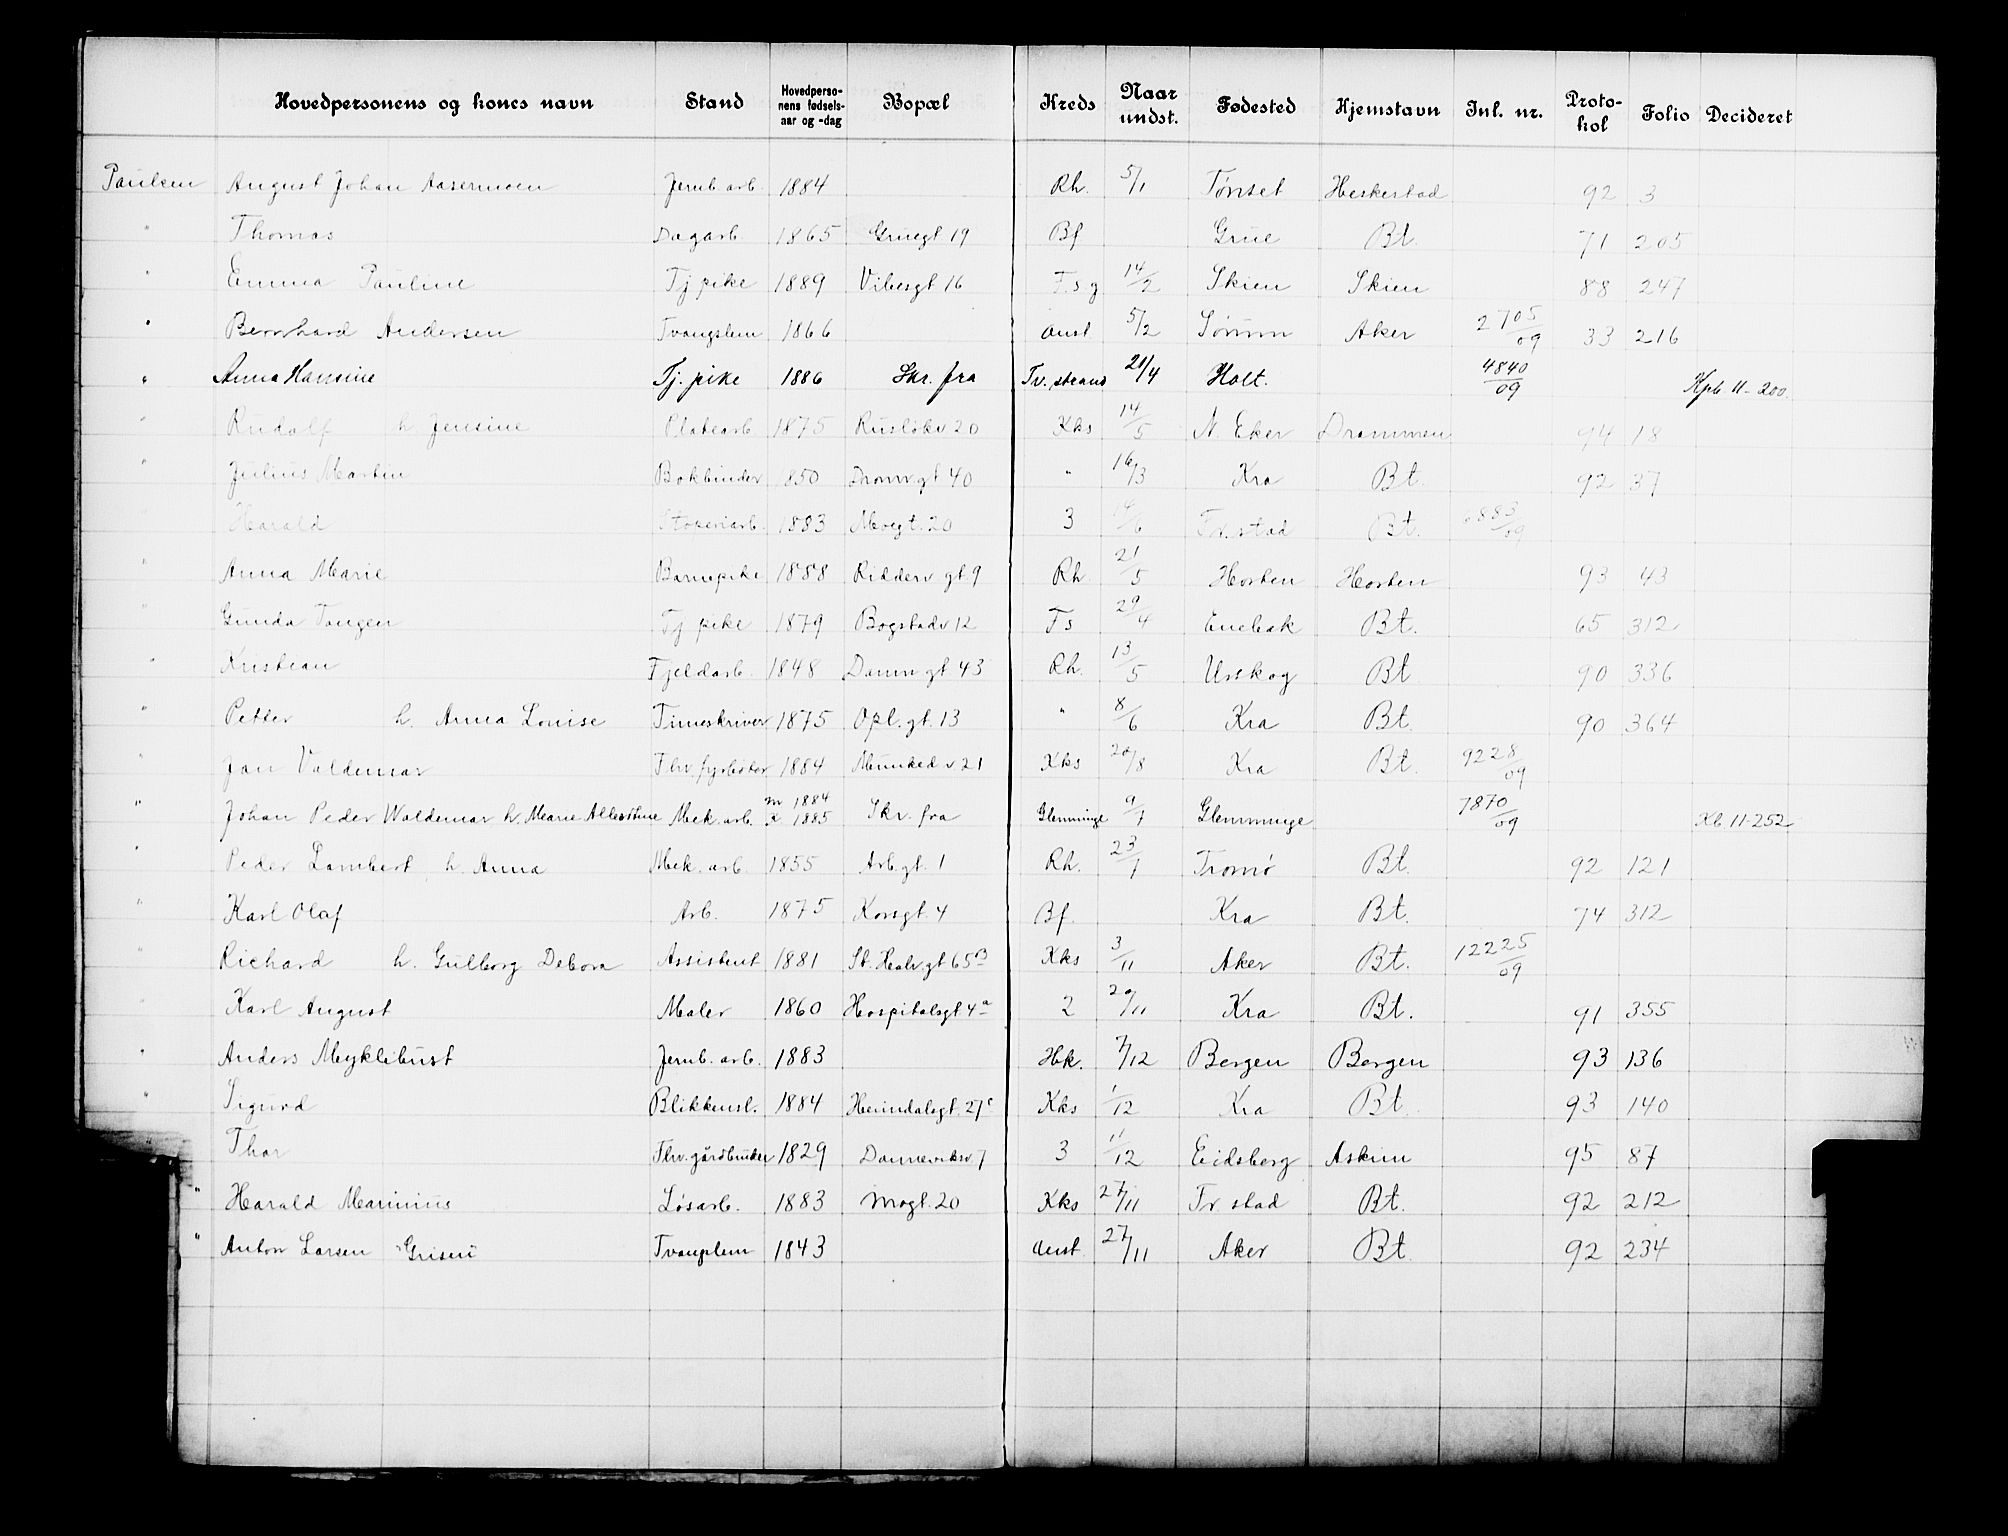 Hovedpersonens og kones navn Stand Hovedperso-nens fødsels-aar og -dag Bopæl Kreds Naar undst. Fødested Hjemstavn Inl. nr. Proto-kol Folio Decideret
Paulsen August Johan Aasermoen Jernb. arb. 1884 Rh. 5/1 Tønset Heskestad 92 3
" Thomas Dagarb. 1865 Gruegt 19 Bf Grue Bt. 71 205
" Emma Pauline Tj pike 1889 Vibesgt 16 F.s g 14/2 Skien Skien 88 247
" Bernhard Andersen Tvangslem 1866 Anst 5/2 Sørum Aker 2705/09 33 216
" Anna Hansine Tj. pike 1886 Skr. fra Tv.strand 21/4 Holt. 4840/09 Kpb 11-200.
" Rudolf h. Jensine Platearb. 1875 Rusløkv 20 Kks 14/5 N. Eker Drammen 94 18
" Julius Martin Bokbinder 1850 Dramv gt 40 " 16/3 Kra Bt. 92 37
" Harald Støperiarb. 1883 Mogt. 20 3 14/6 Fr.stad Bt. 6883/09
" Anna Marie Barnepike 1888 Ridderv gt 9 Rh 21/5 Horten Horten 93 43
" Gunda Tangen Tj pike 1879 Bogstadv 12 Fs 29/4 Enebak Bt. 65 312
" Kristian Fjeldarb. 1848 Damv gt 43 Rh. 13/5 Urskog Bt 90 336
" Petter h. Anna Louise Timeskriver 1875 Opl. gt. 13 " 8/6 Kra Bt 90 364
" Jan Valdemar Fhv. fyrbøter 1884 Munked v 21 Kks 20/8 Kra Bt. 9228/09
" Johan Peder Waldemar h. Marie Albertine Mek. arb. m 1884 k 1885 Skr. fra Glemminge 9/7 Glemminge 7870/09 Kb 11-252
" Peder Lambert h. Anna Mek. arb. 1855 Arb. gt. 1 Rh. 23/7 Tromø Bt. 92 121
" Karl Olaf Arb. 1875 Korsgt. 4 Bf. Kra Bt. 74 312
" Richard h. Gulborg Debora Assistent 1881 St. Halv. gt 65 B Kks 3/11 Aker Bt. 12225/09
" Karl August Maler 1860 Hospitalsgt. 4 a 2 20/11 Kra Bt. 91 355
" Anders Myklebust Jernb. arb. 1883 Hk. 7/12 Bergen Bergen 93 136
" Sigurd Blikkensl. 1884 Heimdalsgt. 27 c Kks 1/12 Kra Bt 93 140
" Thor Fhv. gårdbruker 1829 Danneviksv. 7 3 11/12 Eidsberg Askim 95 87
" Harald Marinius Løsarb. 1883 Mogt. 20 Kks 27/11 Fr. stad Bt. 92 212
" Anton Larsen Tvangslem 1843 Anst. 27/11 Aker Bt. 92 234